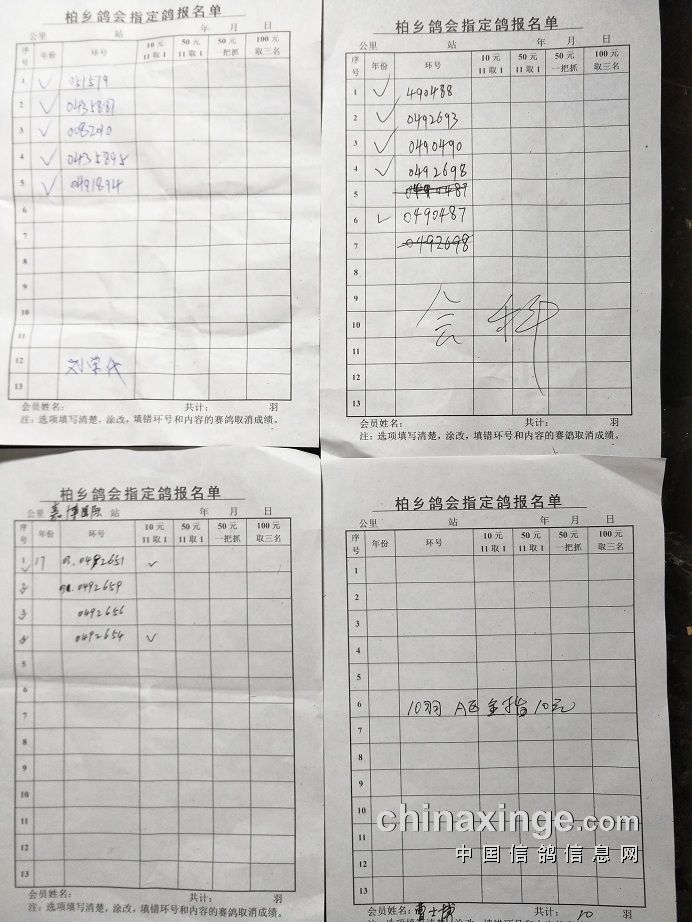 柏乡鸽会指定鸽报名单
公里 站 年 月 日
序号 年份 环号 10元 11取1 50元 11取1 50元 一把抓 100元 取三名
1 ✓ 051579
2 ✓ 0435887
3 ✓ 0083290
4 ✓ 0435895
5 ✓ 0491894
6
7
8
9
10
11
12
13
会员姓名: 共计: 羽
注:选项填写清楚,涂改,填错环号和内容的赛鸽取消成绩。
柏乡鸽会指定鸽报名单
公里 站 年 月 日
序号 年份 环号 10元 11取1 50元 11取1 50元 一把抓 100元 取三名
1 ✓ 490488
2 ✓ 0492693
3 ✓ 0490490
4 ✓ 0492698
5
6 ✓ 0490487
7 0492698
8
9
10 会
11
12
13
会员姓名: 共计: 羽
注:选项填写清楚,涂改,填错环号和内容的赛鸽取消成绩。
柏乡鸽会指定鸽报名单
公里 站 年 月 日
序号 年份 环号 10元 11取1 50元 11取1 50元 一把抓 100元 取三名
1 17 0492651 ✓
2 0492659
3 0492656
4 0492654 ✓
5
6
7
8
9
10
11
12
13
会员姓名: 共计: 羽
注:选项填写清楚,涂改,填错环号和内容的赛鸽取消成绩。
柏乡鸽会指定鸽报名单
公里 站 年 月 日
序号 年份 环号 10元 11取1 50元 11取1 50元 一把抓 100元 取三名
1
2
3
4
5
6 10羽 A区全指10元
7
8
9
10
11
12
13
会员姓名: 共计: 10 羽
注:选项填写清楚,涂改,填错环号和内容的赛鸽取消成绩。
chinaxinge.com
中国信鸽信息网